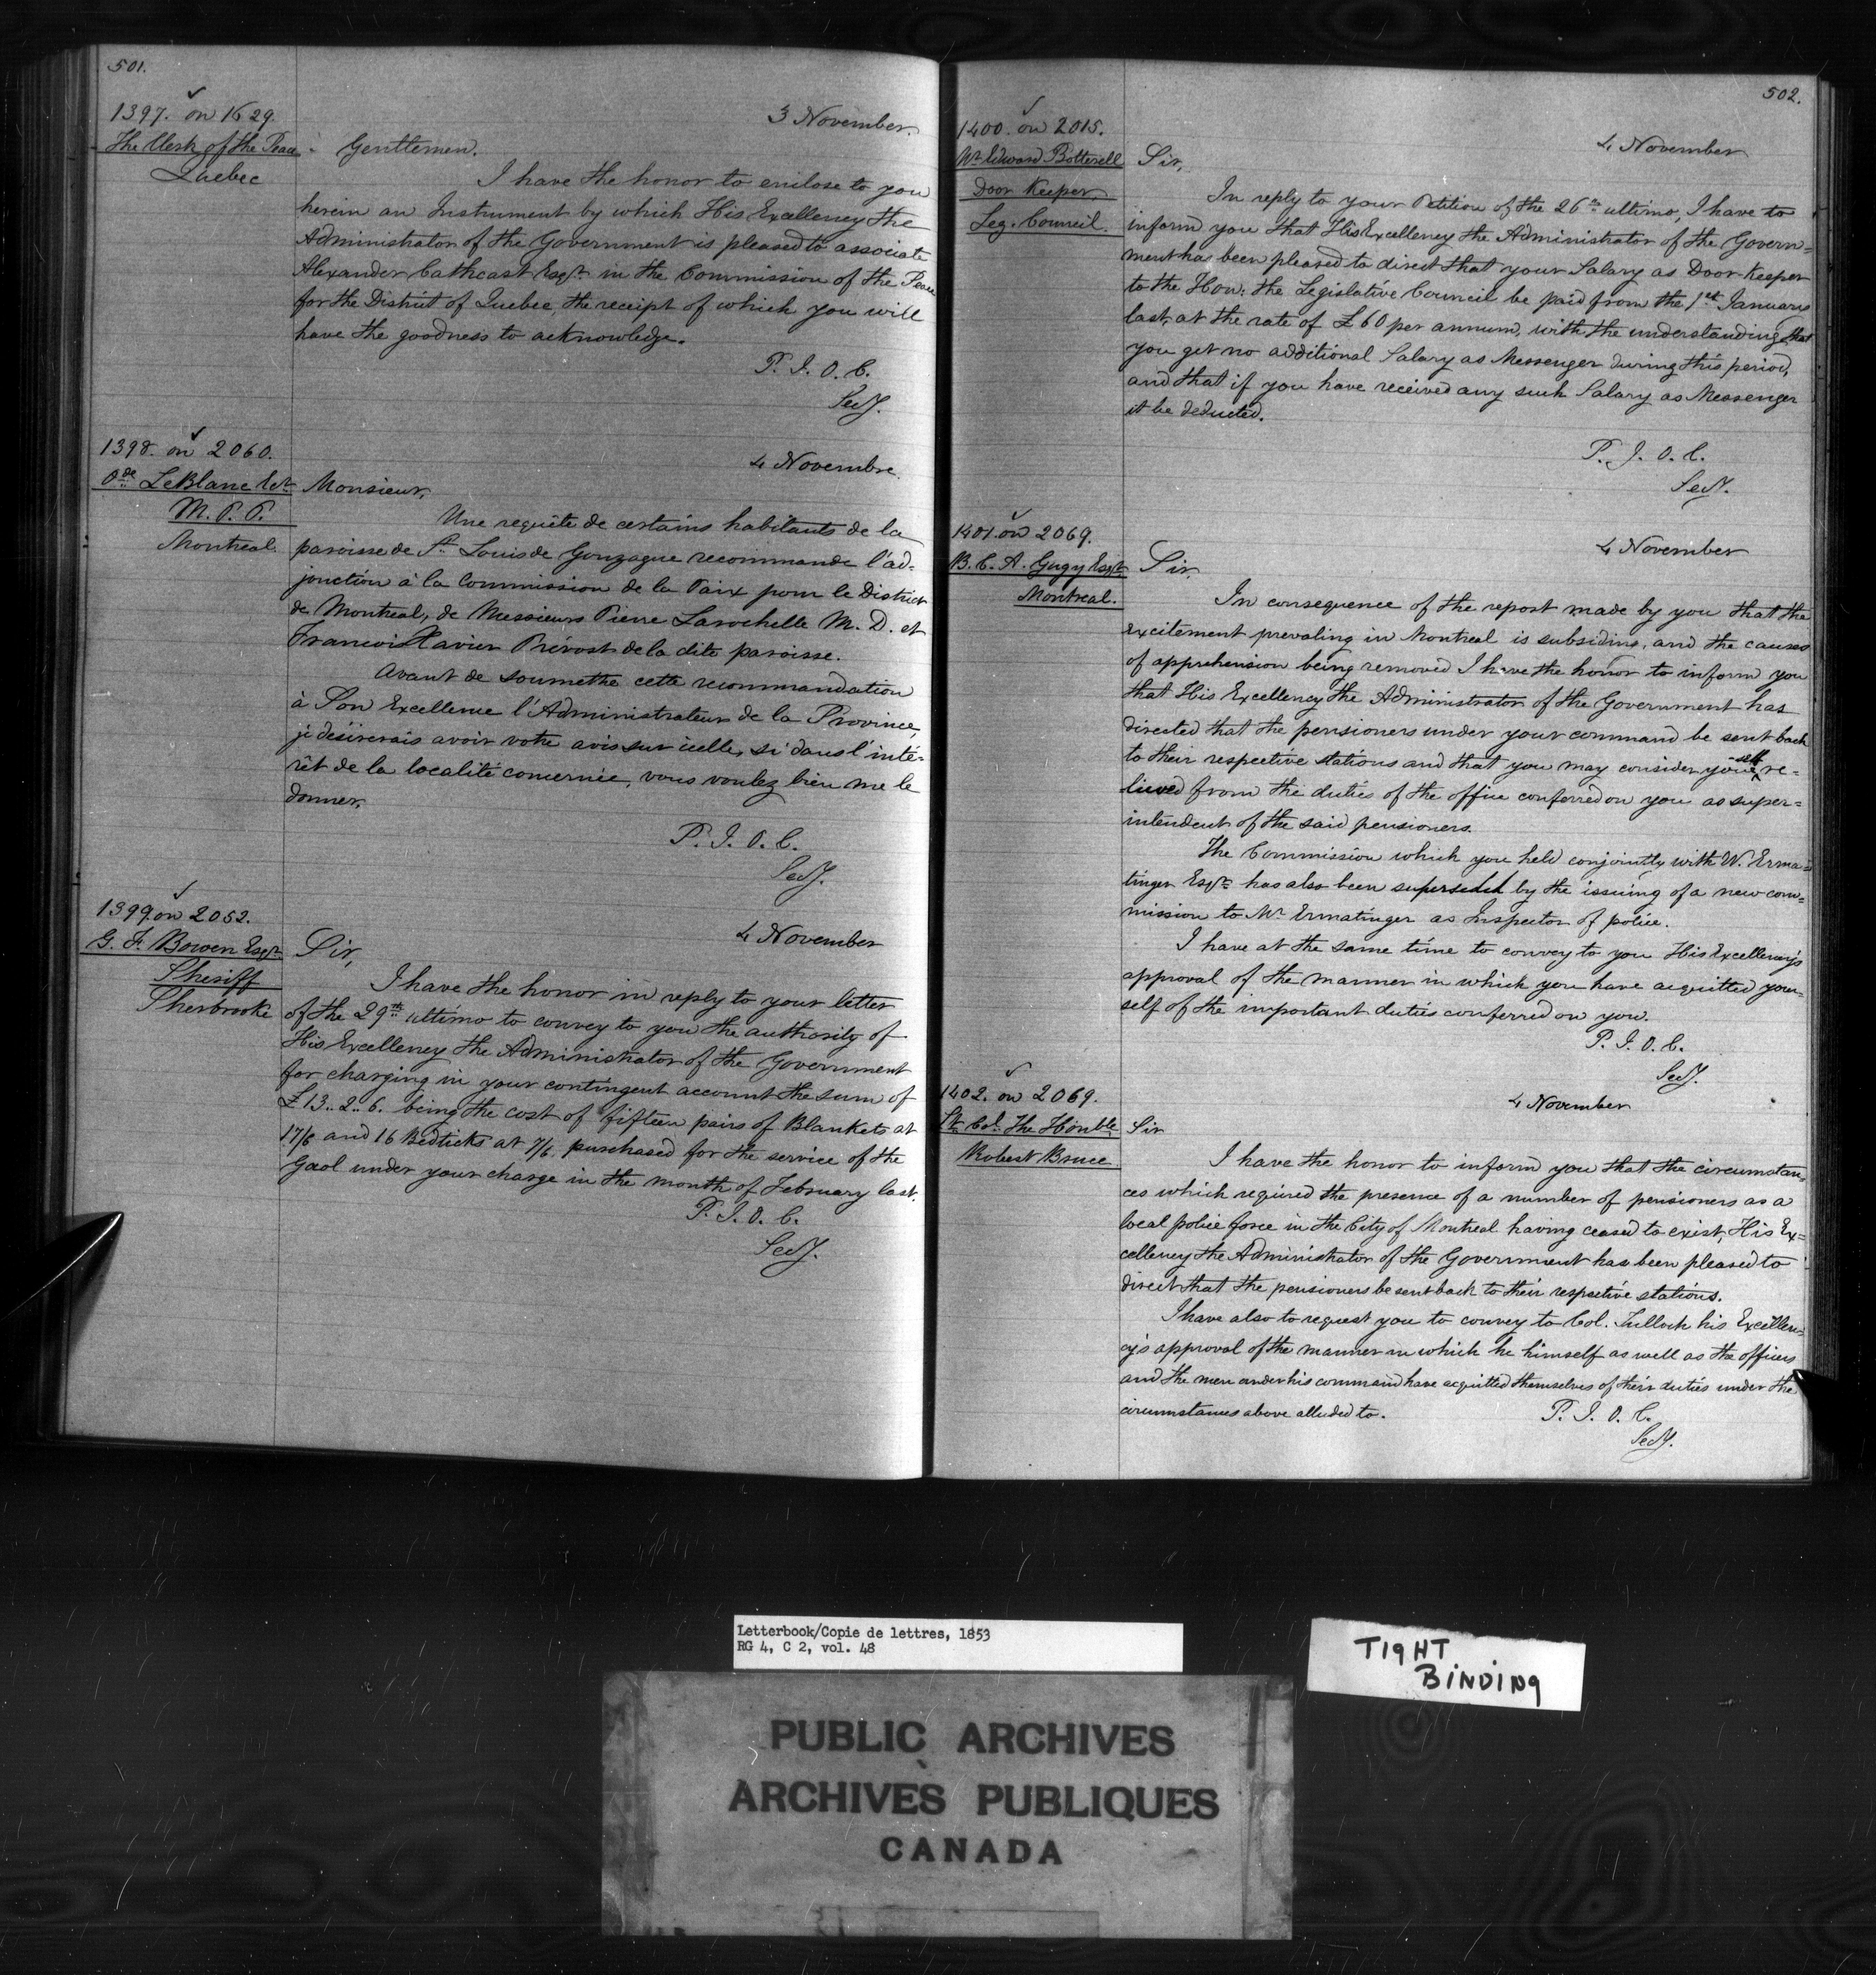 501.
1397. on 1629.
The Clerk of the Peace
Quebec
3 November.
Gentlemen.
I have the honor to enclose to you
herein an Instrument by which His Excellency the
Administrator of the Government is pleased to associate
Alexander Cathcart Esqr. in the Commission of the Peace
for the District of Quebec, the receipt of which you will
have the goodness to acknowledge.
P. J. O. C.
Secy.
1398. on 2060.
Ode LeBlanc Est
M. P. P.
Montreal.
4 Novembre.
Monsieur,
Une requête de certains habitants de la
paroisse de St. Louis de Gonzague recommande l'ad-
jonction à la Commission de la Paix pour le District
de Montreal, de Messieurs Pierre Larochelle M. D. et
Francois Xavier Prévost de la dite paroisse.
Avant de soumettre cette recommandation
à Son Excellence l'Administrateur de la Province,
je désirerais avoir votre avis sur icelle, si dans l'inté-
rêt de la localité concernée, vous voulez bien me le
donner.
P. J. O. C.
Secy.
1399. on 2052.
G. F. Bowen Esqr.
Sheriff
Sherbrooke
4 November
Sir,
I have the honor in reply to your letter
of the 29th ultimo to convey to you the authority of
His Excellency the Administrator of the Government
for charging in your contingent account the sum of
£13..2..6. being the cost of fifteen pairs of Blankets at
17/6 and 16 Bedticks at 7/6 purchased for the service of the
Gaol under your charge in the month of February last.
P. J. O. C.
Secy.
502.
1400. on 2015.
Mr. Edward Botterell
Door Keeper,
Leg. Council.
4 November
Sir,
In reply to your Petition of the 26th ultimo, I have to
inform you that His Excellency the Administrator of the Govern=
ment has been pleased to direct that your Salary as Door Keeper
to the Hon: the Legislative Council be paid from the 1st January
last, at the rate of £60 per annum, with the understanding that
you get no additional Salary as Messenger during this period,
and that if you have received any such Salary as Messenger
it be deducted.
P. J. O. C.
Secy.
1401. on 2069.
B. C. A. Gugy Esqr.
Montreal.
4 November
Sir,
In consequence of the report made by you that the
Excitement prevaling in Montreal is subsiding, and the causes
of apprehension being removed I have the honor to inform you
that His Excellency the Administrator of the Government has
directed that the pensioners under your command be sent back
to their respective stations and that you may consider yourself re=
lieved from the duties of the office conferred on you as super=
intendent of the said pensioners.
The Commission which you held conjointly with W. Erma=
tinger Esqr. has also been superseded by the issuing of a new com=
mission to Mr. Ermatinger as Inspector of police.
I have at the same time to convey to you His Excellency's
approval of the manner in which you have acquitted your=
self of the important duties conferred on you.
P. J. O. C.
Secy.
1402. on 2069.
Lt. Col. The Honble.
Robert Bruce
4 November
Sir
I have the honor to inform you that the circumstan=
ces which required the presence of a number of pensioners as a
local police force in the City of Montreal having ceased to exist, His Ex=
cellency the Administrator of the Government has been pleased to
direct that the pensioners be sent back to their respective stations.
I have also to request you to convey to Col. Tulloch his Excellen=
cy's approval of the manner in which he himself as well as the officers
and the men under his command have acquitted themselves of their duties under the
circumstances above alluded to.
P. J. O. C.
Secy.
Letterbook/Copie de lettres, 1853
RG 4, C 2, vol. 48
TIGHT
BINDING
PUBLIC ARCHIVES
ARCHIVES PUBLIQUES
CANADA